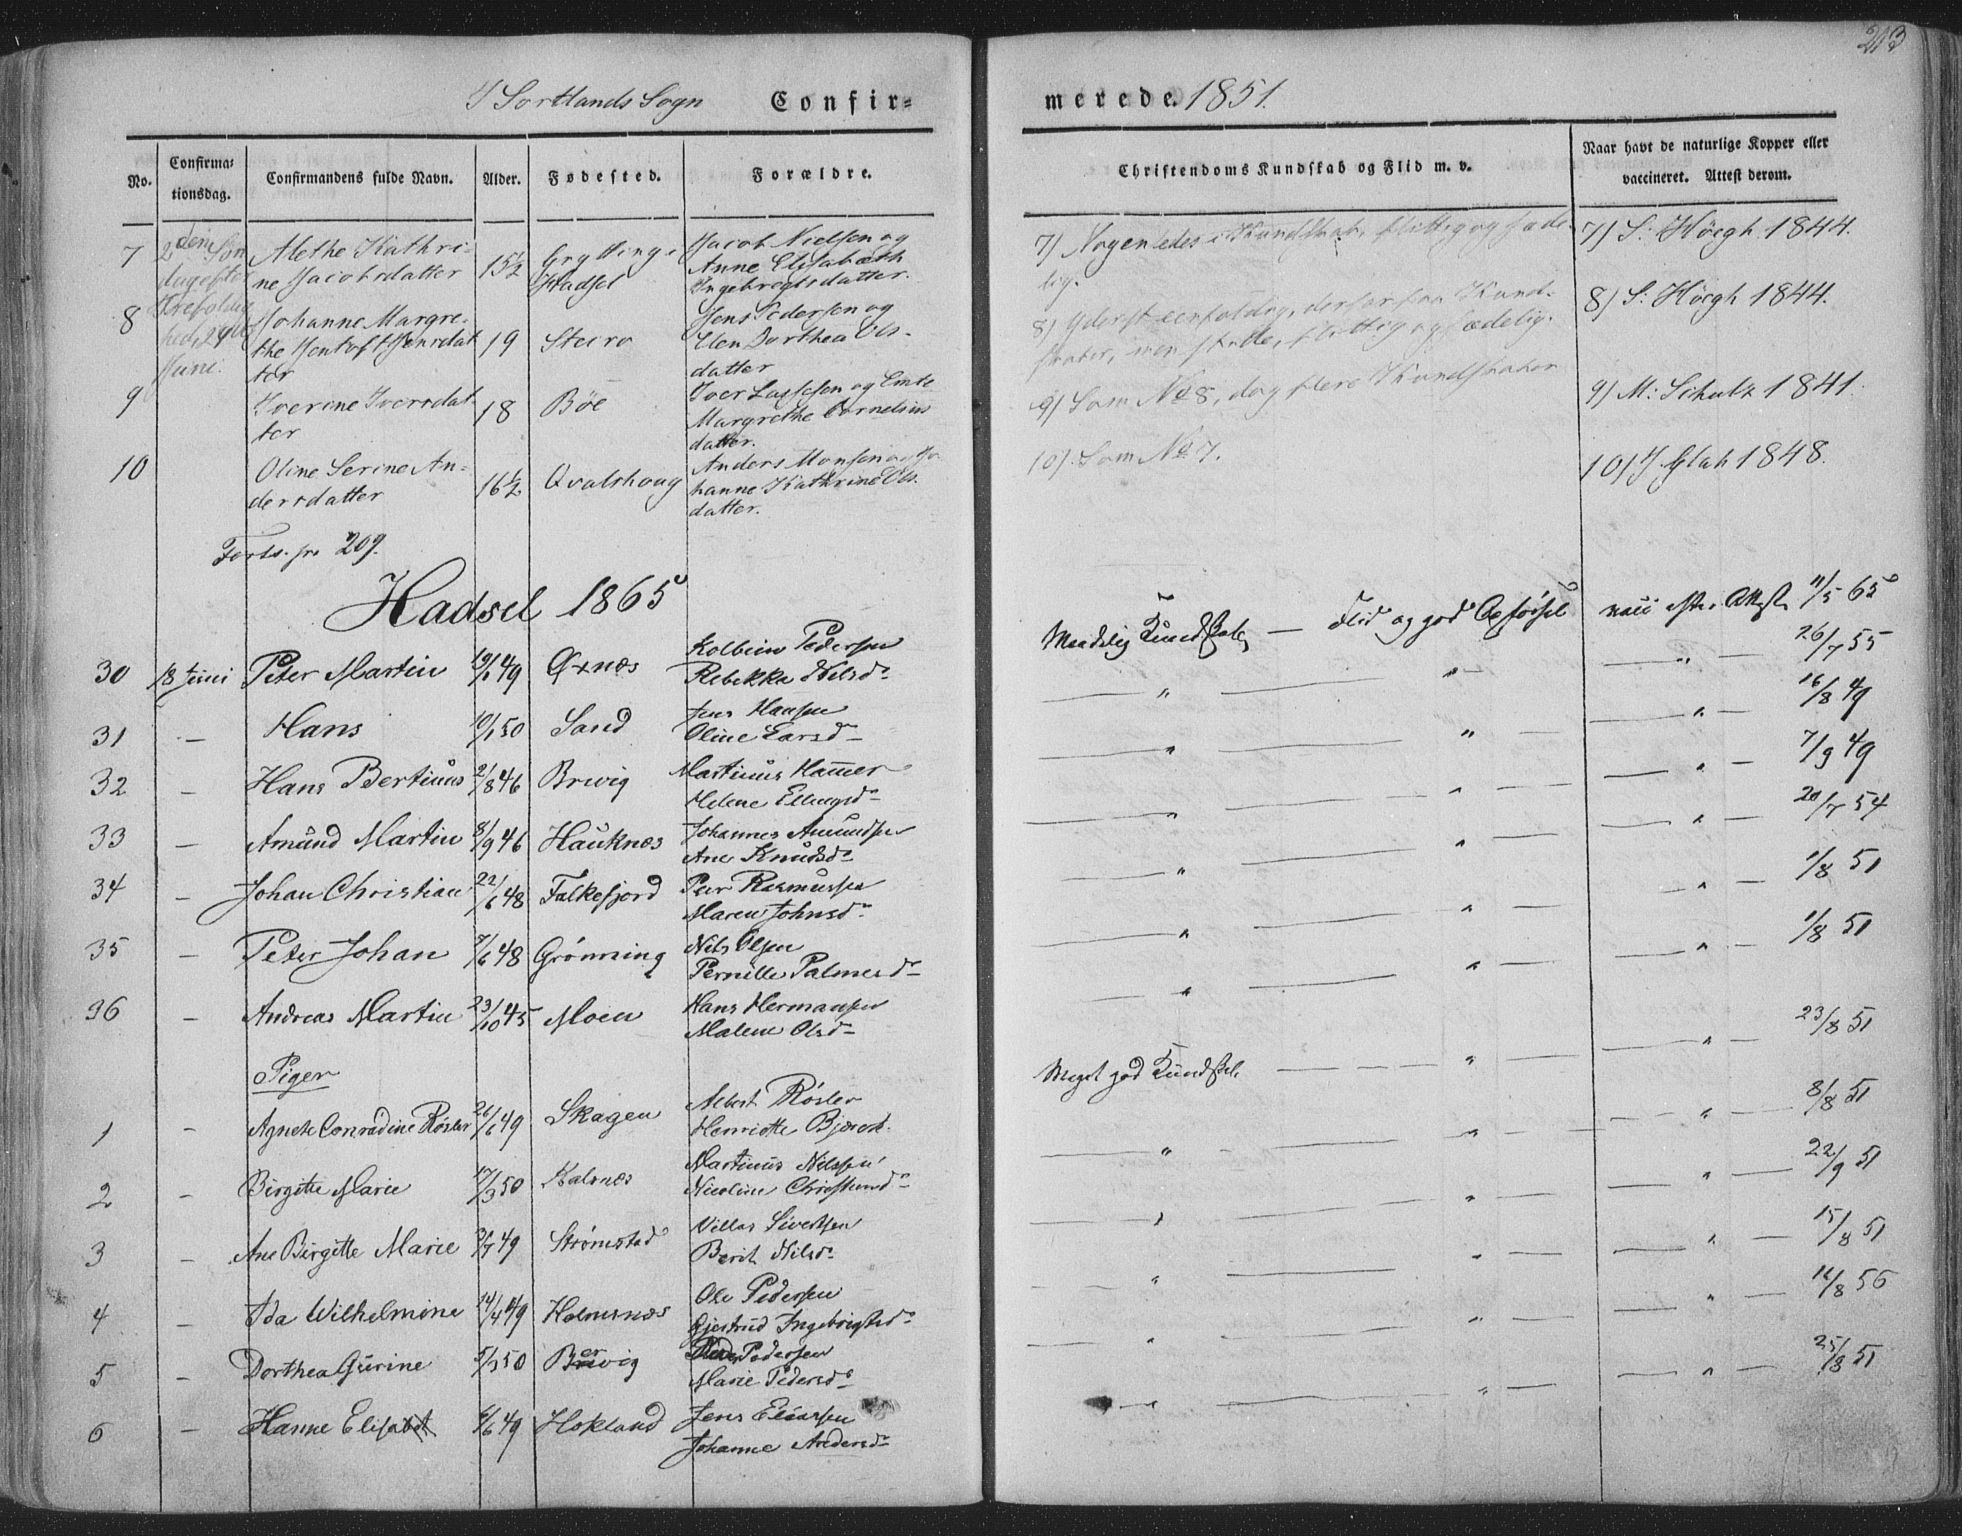 213
I Sortlands Sogn Confir=
merede. 1851.
No. Confirma: tionsdag. Confirmandens fulde Navn. Alder. Fødested. Forældre.
Christendoms Kundskab og Flid m. v. Naar havt de naturlige Kopper eller vaccineret. Attest derom.
7 2den Søn Alethe Kathri- 15½ Grytting i Jacob Nielsen og
dag efter ne Jacobsdatter Hadsel Anne Elisabeth
Ingebregtsdatter.
7) Nogenledes i Kundskab, flittig og sæde-
lig.
7) S: Höegh 1844.
Trefoldig
8 hed, Johanne Margre- 19 Steiro Jens Pedersen og
Juni. the Jentoft Jensdat Elen Dorthea Ols-
ter datter
8) Yderst eenfoldig, derfor faa Kund-
skaber, men stille, flittig og sædelig.
8) S: Höegh 1844.
9 Iverine Iversdat- 18 Böe Iver Lassesen og
ter Margrethe Cornelius
datter.
9) Som No 8, dog flere Kundskaber
9) M: Schultz 1841.
10 Oline Serine An- 16½ Qvalshaug Anders Monsen og Jo
dersdatter hanne Kathrine Ols-
datter.
10) Som No 7.
10) J Glah 1848.
Forts. fra 209.
Hadsel 1865
Maadelig Kundskab — Flid og god Opførsel vacc efter Attest 11/5 65
30 18 Juni Peter Martin 49 Øxnæs Kolbein Pedersen
Rebekka Nilsd-
" " " 26/7 55
31 — Hans 10/1 50 Sand Jens Hansen
Oline Larsd-
" " " 16/8 49
32 — Hans Bertinus 2/8 46 Brevig Martinus Hammer
Helene Ellingsd-
" " " 7/9 49
33 — Amund Martin 8/9 46 Hauknes Johannes Amundsen
Ane Knudsd-
" " " 20/7 54
34 — Johan Christian 22/6 48 Falkefjord Peer Rasmussen
Maren Johnsd-
" " " 1/8 51
35 — Peter Johan 7/6 48 Grønning Nils Olsen
Pernille Palmesd-
" " " 1/8 51
36 — Andreas Martin 23/10 45 Moen Hans Hermansen
Malene Olsd-
" " " 23/8 51
Piger
Meget god Kundskab
1 — Agnete Conradine Rösler 26/6 49 Skagen Albert Rösler
Henriette
" " 8/8 51
2 — Birgitte Marie 17/3 50 Kalsnes Martinus Nilssen
Nicoline
" " " 22/9 51
3 — Ane Birgitte Marie 49 Strømstad Villas Sivertsen
Berit Nilsd-
" " " 15/8 51
4 — Ida Wilhelmine 14/4 49 Holmsnæs Ole Pedersen
Gjertrud Ingebrigtsd-
" " " 56
5 — Dorthea Gurine 5/3 50 Bervig Peder Pedersen
Marie Pedersd-
" " " 25/8 51
6 — Hanne Elisabet 49 Hokland Jens Eliassen
Johanne Andersd-
" "